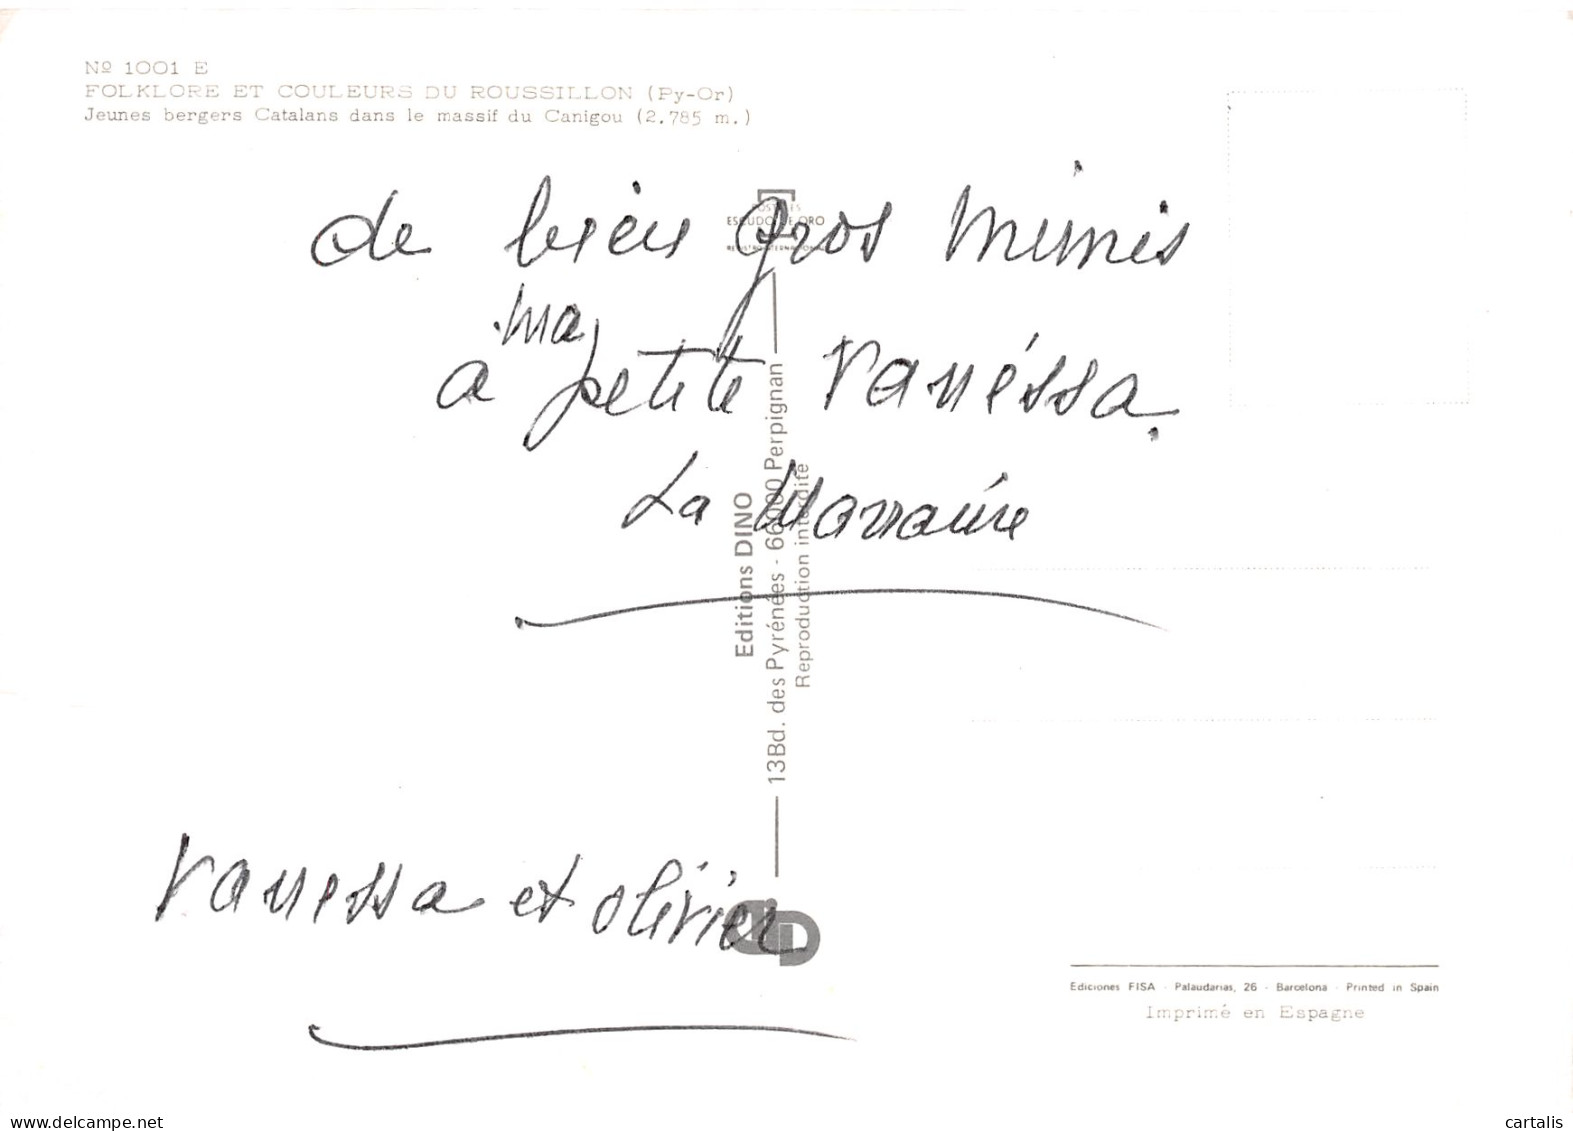 Nº 1001 E
FOLKLORE ET COULEURS DU ROUSSILLON (Py-Or)
Jeunes bergers Catalans dans le massif du Canigou (2.785 m.)
ESCUDO DE ORO
de bien gros mimis
ma
a petite Vanéssa.
La Marraine
Editions DINO
13Bd. des Pyrénées - 66000 Perpignan
Reproduction interdite
Vanessa et olivier
Ediciones FISA - Palaudarias, 26 - Barcelona - Printed in Spain
Imprimé en Espagne
delcampe.net
cartalis